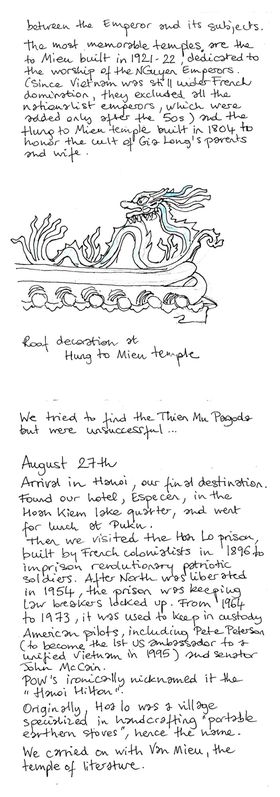 between the Emperor and its subjects.
The most memorable temples are the
to Mieu built in 1921-22, dedicated to
the worship of the NGuyen Emperors.
(Since Vietnam was still under French
domination, they excluded all the
nationalist emperors, which were
added only after the 50s) and the
Hung to Mieu temple built in 1804 to
honor the cult of Gia Long's parents
and wife.
Roof decoration at
Hung to Mieu temple
We tried to find the Thien Mu Pagoda
but were unsuccessful...
August 27th
Arrival in Hanoi, our final destination.
Found our hotel, Especen, in the
Hoan Kiem lake quarter, and went
for lunch at Puku.
Then we visited the Hoa Lo prison,
built by French colonialists in 1896 to
imprison revolutionary patriotic
soldiers. After North was liberated
in 1954, the prison was keeping
law breakers locked up. From 1964
to 1973, it was used to keep in custody
American pilots, including Pete Peterson
(to become the 1st US ambassador to a
unified Vietnam in 1995) and senator
John McCain.
POW's ironically nicknamed it the
"Hanoi Hilton".
Originally, Hoa lo was a village
specialized in handcrafting "portable
earthern stoves", hence the name.
We carried on with Van Mieu, the
temple of literature.